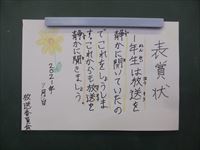 表賞状
一年生は放送を
静かに聞いていたの
でこれをしょうしま
す。これからも放送を
静かに聞きましょう。
2021年
放送委員会